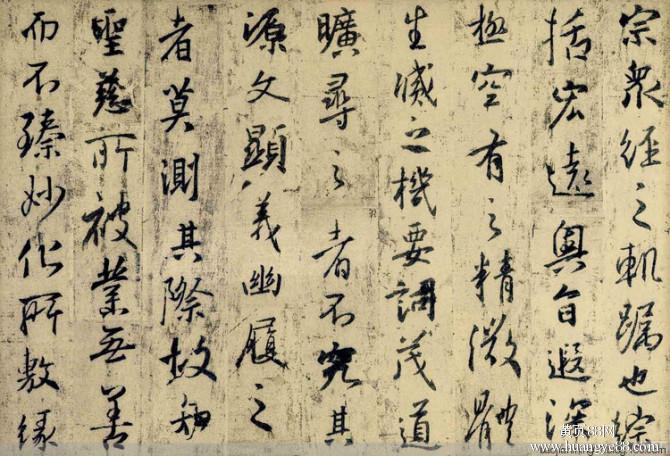 宗衆經之軌躅也綜
括宏遠奧旨遐深
極空有之精微體
生滅之機要詞茂道
曠尋之者不究其
源文顯義幽履之
者莫測其際故知
聖慈所被業無善
而不臻妙化所敷緣
黄页88网
www.huangye88.com